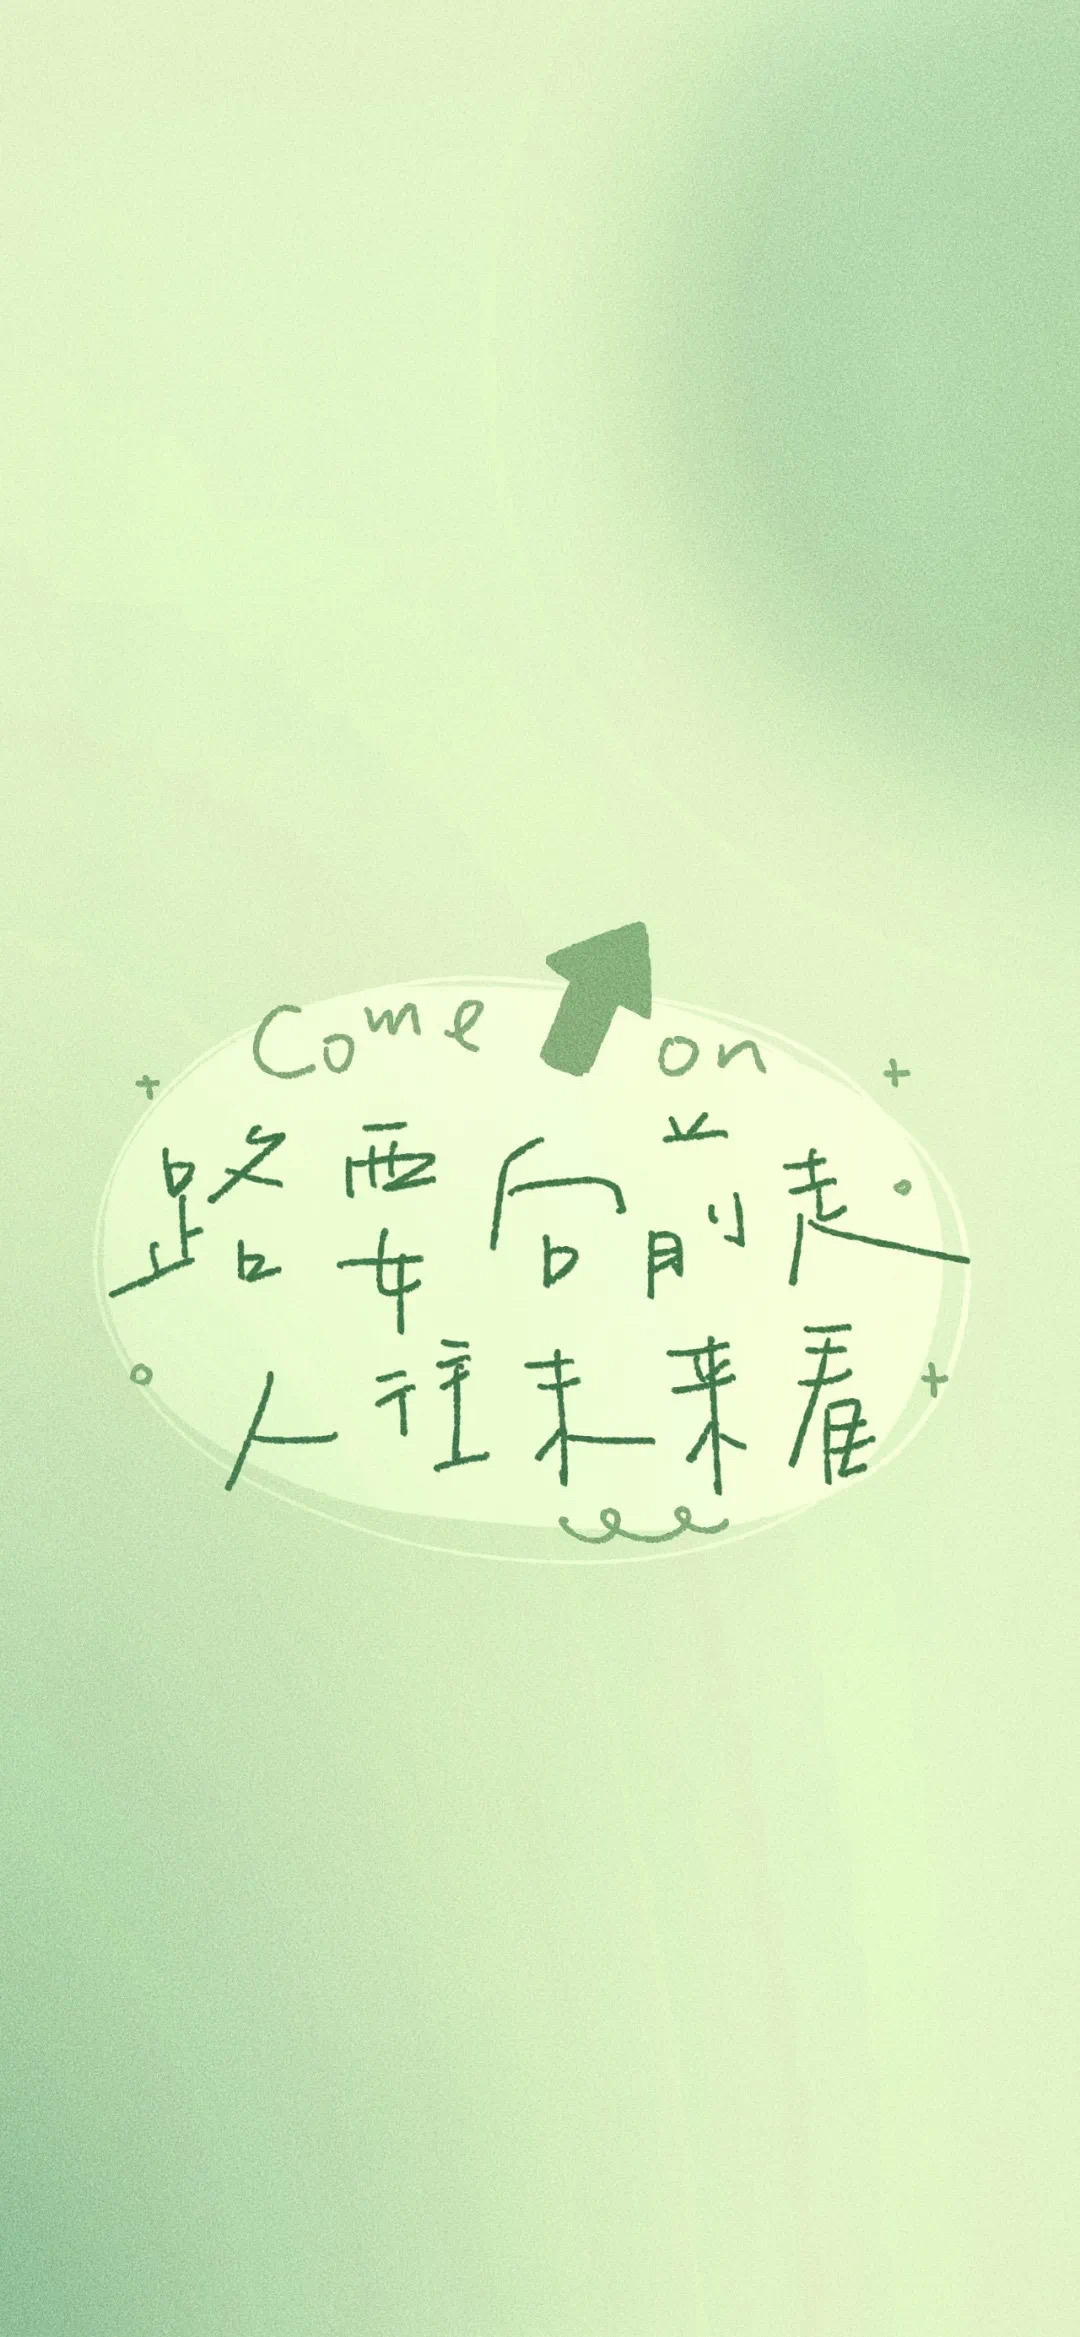 Come on
路要向前走
人往未来看